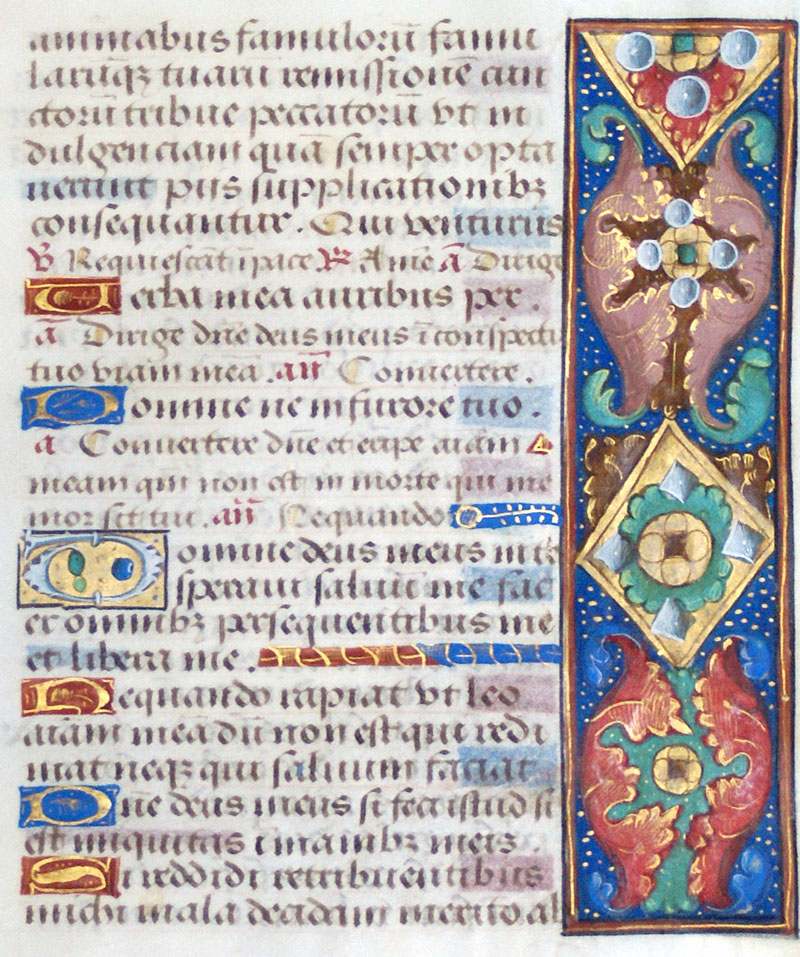 animabus famulorū famu
larūqꝫ tuarū remissionē cun
ctorū tribue peccatorū vt in
dulgenciam quā semper opta
uerunt piis supplicationibꝫ
consequantur. Qui venturus
℣ Requiescāt ī pace ℟ Amē ā Dirige
Uerba mea auribus per.
ā Dirige dn̄e deus meus ī conspectu
tuo viam meā. an̄ Conuertere.
Domine ne in furore tuo.
a Conuertere dn̄e et eripe aīam
meam qm̄ non est in morte qui me
mor sit tui. an̄ Nequando
Domine deus meus in te
speraui saluū me fac
ex omnibꝫ persequentibus me
et libera me.
Nequando rapiat vt leo
aīam meā dū non est qui redi
mat neqꝫ qui saluum faciat
Dn̄e deus meus si feci istud si
est iniquitas ī manibꝫ meis.
Si reddidi retribuentibus
michi mala decidam merito ab